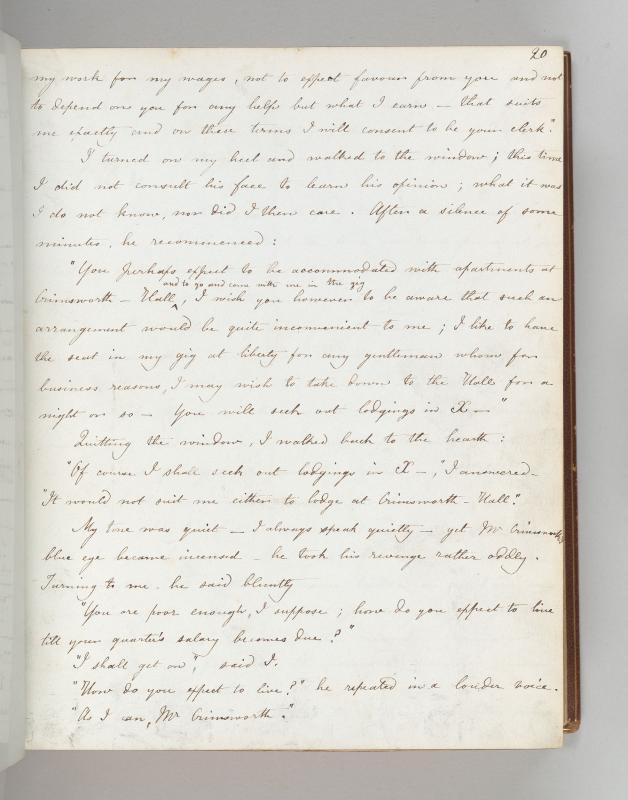 20
my work for my wages, not to expect favour from you and not
to depend on you for any help but what I earn — that suits
me exactly and on these terms I will consent to be your clerk".
I turned on my heel and walked to the window; this time
I did not consult his face to learn his opinion; what it was
I do not know, nor did I then care. After a silence of some
minutes, he recommenced:
"You perhaps expect to be accommodated with apartments at
and to go and come with me in the gig
Crimsworth — Hall, I wish you however to be aware that such an
arrangement would be quite inconvenient to me; I like to have
the seat in my gig at liberty for any gentleman whom for
business reasons, I may wish to take down to the Hall for a
night or so — You will seek out lodgings in X —"
Quitting the window, I walked back to the hearth:
"Of course I shall seek out lodgings in X —," I answered –
"It would not suit me either to lodge at Crimsworth – Hall".
My tone was quiet — I always speak quietly — yet Mr Crimsworth's
blue eye became incensed – he took his revenge rather oddly.
Turning to me he said bluntly
"You are poor enough, I suppose; how do you expect to live
till your quarter's salary becomes due?"
"I shall get on", said I.
"How do you expect to live?" he repeated in a louder voice.
"As I can, Mr Crimsworth."